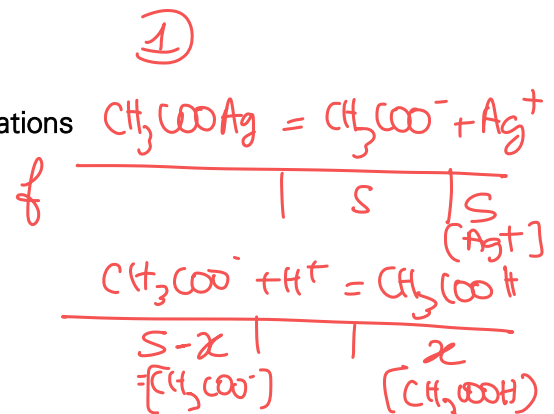 ①
ations CH₃COOAg = CH₃COO⁻ + Ag⁺
f | S | S
[Ag⁺]
CH₃COO⁻ + H⁺ = CH₃COOH
S-x | | x
=[CH₃COO⁻] [CH₃COOH)